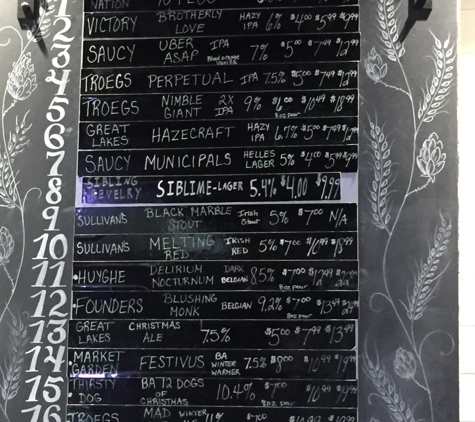 NATION
1
2 VICTORY BROTHERLY LOVE HAZY IPA $4.00 $5.99
3 SAUCY UBER ASAP IPA Blood orange Vanilla 7% $5.00 $7.99 $12.99
4 TROEGS PERPETUAL IPA 7.5% $5.00 $7.99 $12.99
5 TROEGS NIMBLE GIANT 2X IPA 9% 8oz pour $10.99 $18.99
6 GREAT LAKES HAZECRAFT HAZY IPA 6.7% $5.00 $7.99 $12.99
7 SAUCY MUNICIPALS HELLES LAGER 5% $4.00 $5.99
8 SIBLING REVELRY SIBLIME-LAGER 5.4% $4.00 $9.99
9 SULLIVANS BLACK MARBLE STOUT Irish Stout 5% $7.00 N/A
10 SULLIVANS MELTING RED IRISH RED 5% $7.00 $10.99 $18.99
11 HUYGHE DELIRIUM NOCTURNUM DARK BELGIAN 8.5% $7.00
12 FOUNDERS BLUSHING MONK BELGIAN 9.2% $7.00 8oz pour $13.99
13 GREAT LAKES CHRISTMAS ALE 7.5% $5.00 $7.99 $13.99
14 MARKET GARDEN FESTIVUS BA WINTER WARMER 7.5% $8.00 $10.99
15 THIRSTY DOG BA 12 DOGS OF CHRISTMAS 10.4% $7.00 8oz pour $10.99
16 TROEGS MAD WINTER 11% $7.00